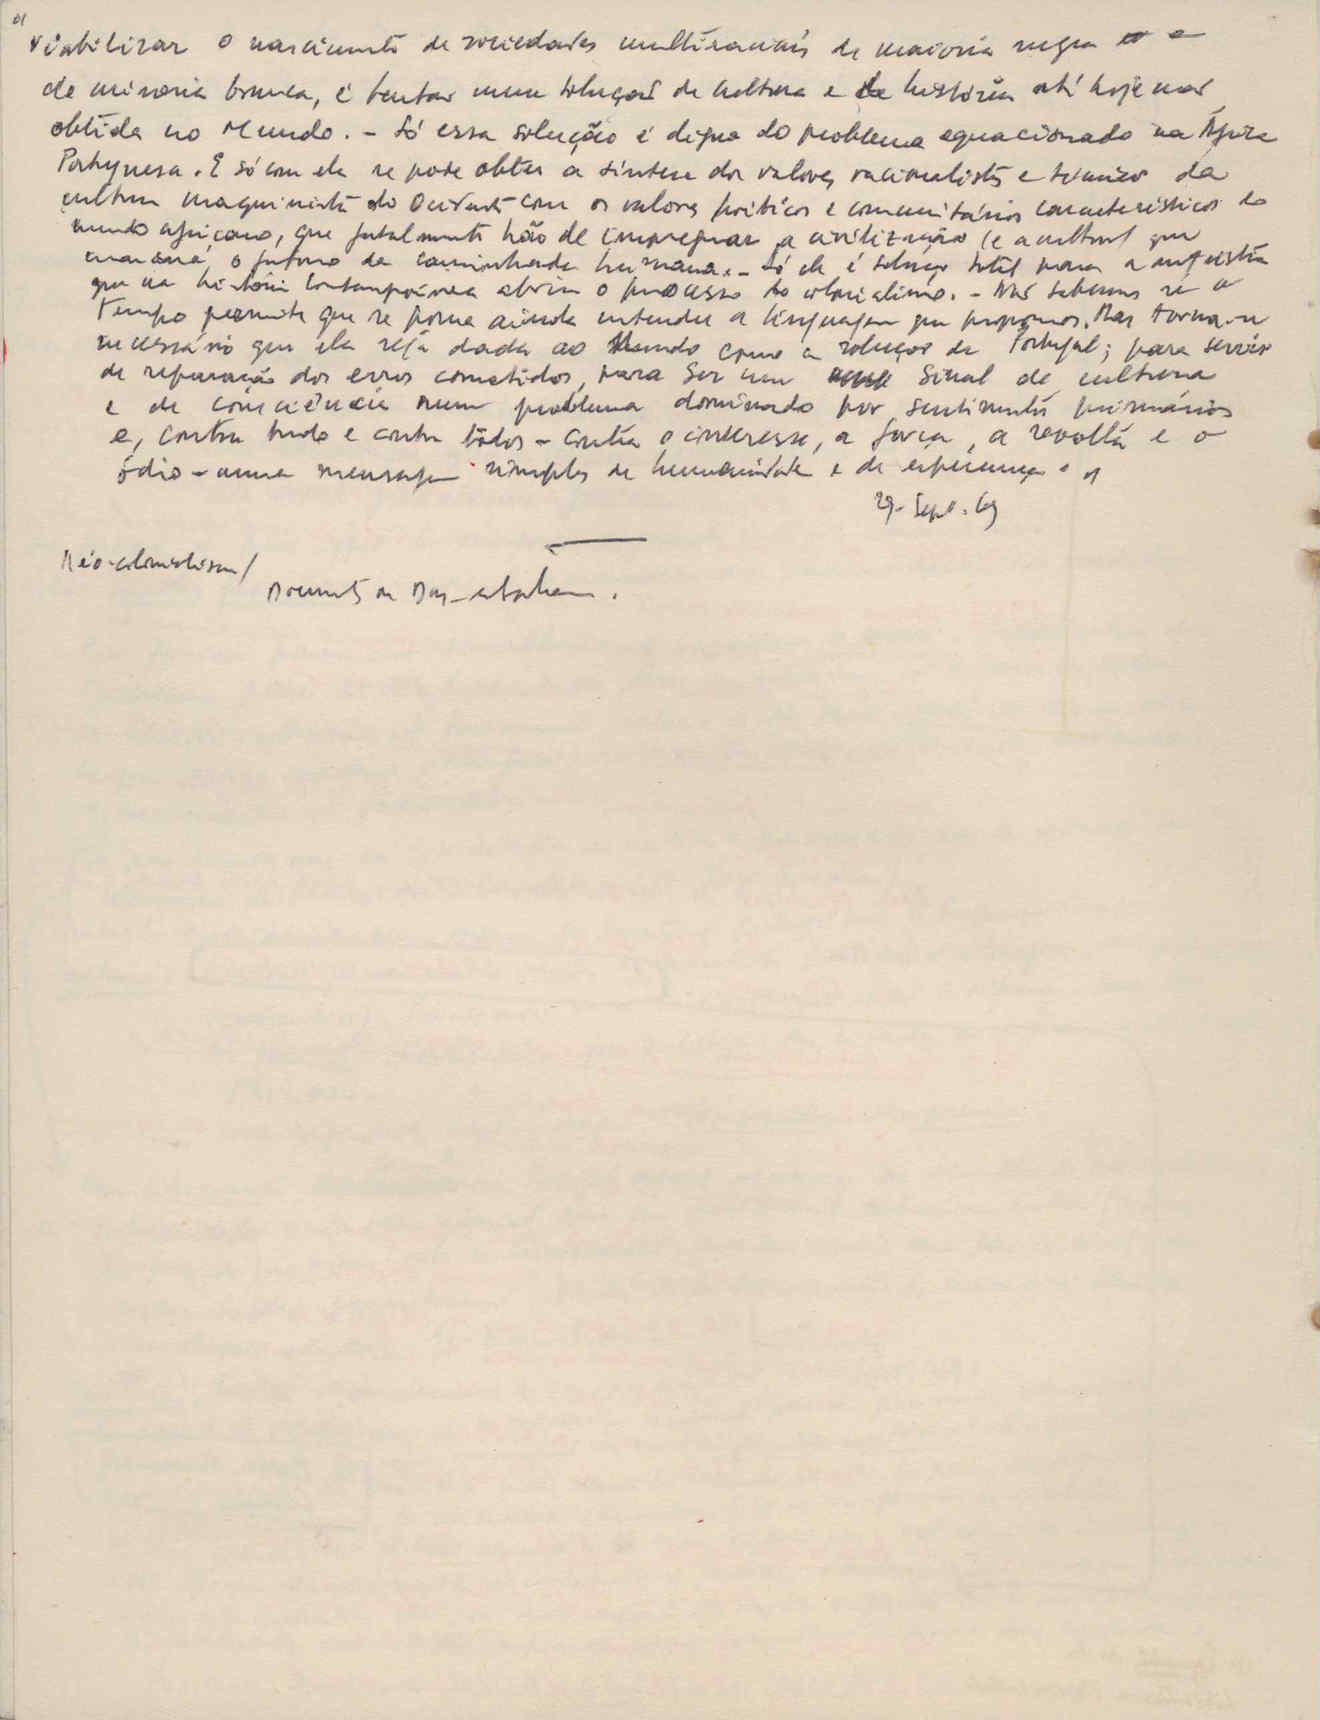 viabilizar o nascimento de sociedades multiraciais de maioria negra e
de minoria branca, é tentar uma solução de cultura e de história até hoje não
obtida no Mundo. - Só essa solução é digna do problema equacionado na África
Portuguesa. E só com ela se pode obter a síntese dos valores racionalistas e técnicos da
cultura maquinista do Ocidente com os valores poéticos e comunitários característicos do
mundo africano, que fatalmente hão de impregnar a civilização (e a cultura) que
marcará o futuro da caminhada humana. - Só ela é solução total para a
que na história contemporânea abriu o processo do colonialismo. - Não sabemos se o
Tempo permite que se possa ainda entender a linguagem que propomos. Mas torna-se
necessário que ela seja dada ao Mundo como a solução de Portugal; para servir
de reparação dos erros cometidos, para ser um sinal de cultura
e de consciência num problema dominado por sentimentos primários
e, contra tudo e contra todos - contra o interesse, a força, a revolta e o
ódio - uma mensagem simples de humanidade e de esperança.
29. Sept. 69
Néo-colonialismo/